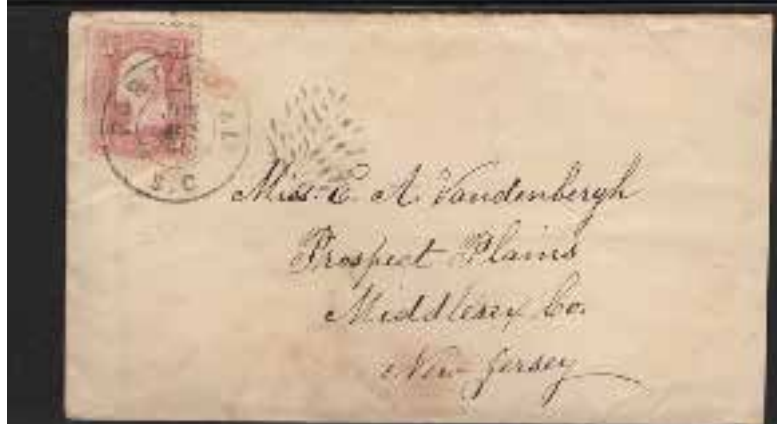 S.C
Miss C. A. Vandenbergh
Prospect Plains
Middlesex Co.
New Jersey